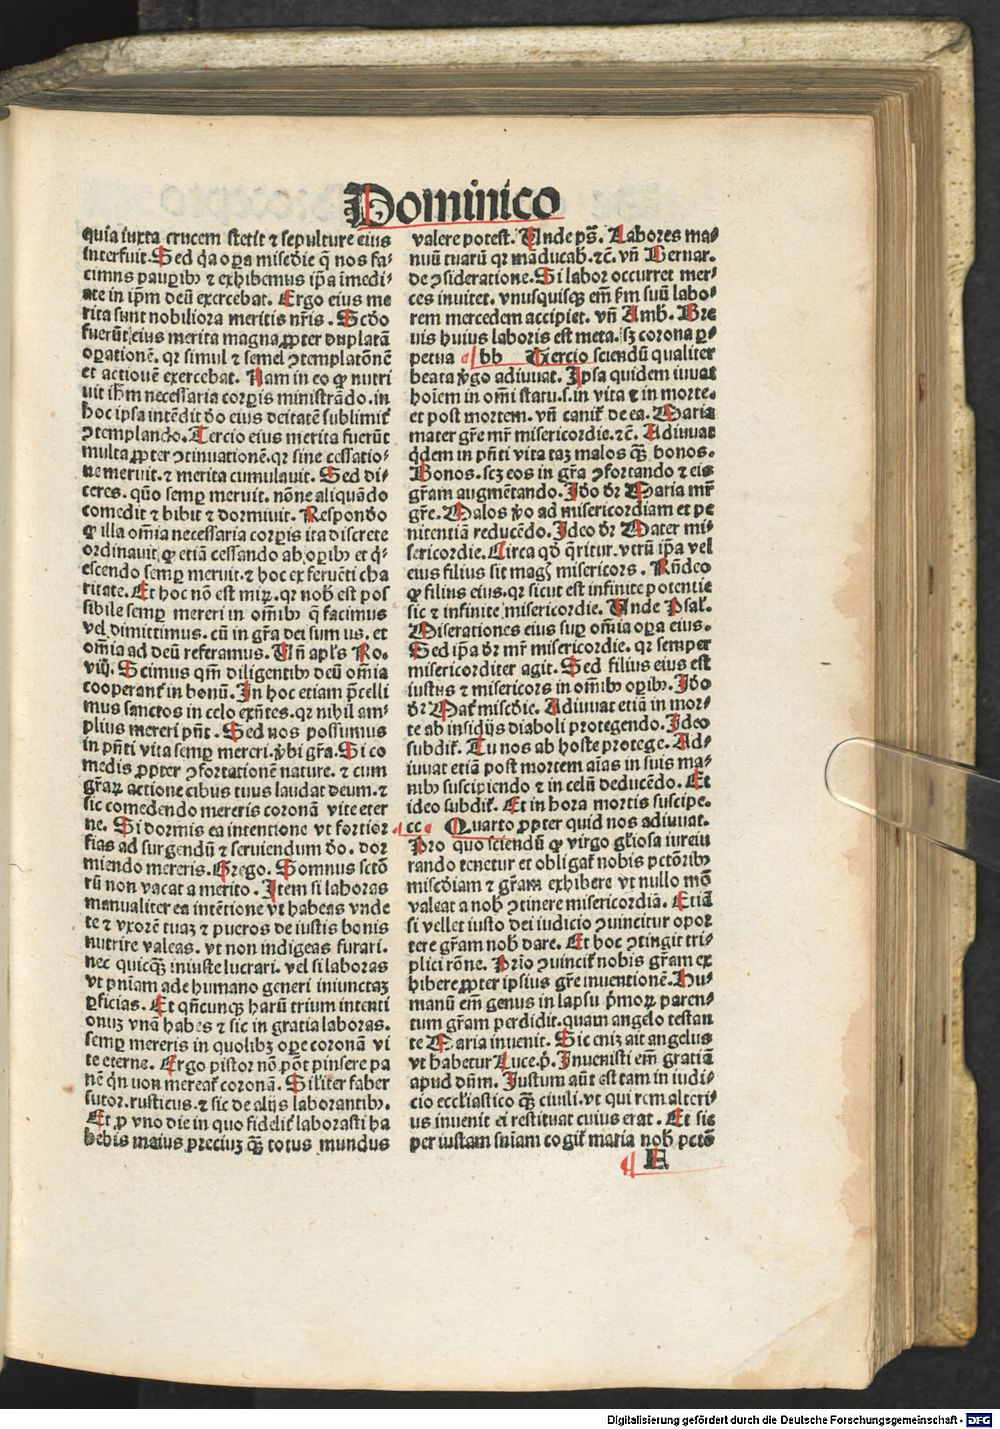 Dominico
quia iuxta crucem stetit ⁊ sepulture eius
interfuit. Sed q̄a oꝑa misedie q̄ nos fa-
cimus pauꝑibꝫ ⁊ exhibemus ip̄a īmedi-
ate in ip̄m deū exercebat. Ergo eius me
rita sunt nobiliora meritis nr̄is. Scd̄o
fuerūt eius merita magna ꝓpter duplatā
oꝑationē. qꝛ simul ⁊ semel ꝯtemplatōnē
et actionē exercebat. Nam in eo ꝙ nutri
uit ih̄m necessaria corꝑis ministrādo. in
hoc ipsa intēdit d̄o eius deitatē sublimit᷑
ꝯtemplando. Tercio eius merita fuerūt
multa ꝓpter ꝯtinuationē. qꝛ sine cessatio-
ne meruit. ⁊ merita cumulauit. Sed di-
ceres. quō semꝑ meruit. nōne aliquādo
comedit ⁊ bibit ⁊ dormiuit. Respondo
ꝙ illa om̄ia necessaria corꝑis ita discrete
ordinauit ꝙ etiā cessando ab oꝑibꝫ et q̇-
escendo semꝑ meruit. ⁊ hoc ex feruēti cha
ritate. Et hoc nō est miꝝ. qꝛ nob̄ est pos
sibile semꝑ mereri in om̄ibꝫ q̄ facimus
vel dimittimus. cū in gr̄a dei sumus. et
om̄ia ad deū referamus. Vn̄ apl̄s Ro.
viij. Scimus qm̄ diligentibꝫ deū om̄ia
cooperant᷑ in bonū. In hoc etiam p̄celli
mus sanctos in celo exn̄tes. qꝛ nihil am-
plius mereri pn̄t. Sed nos possumus
in pn̄ti vita semꝑ mereri. v̓bi gr̄a. Si co
medis ꝓpter ꝯfortationē nature. ⁊ cum
gr̄aꝝ actione cibus tuus laudat deum. ⁊
sic comedendo mereris coronā vite eter
ne. Si dormis ea intentione vt fortior
fias ad surgendū ⁊ seruiendum d̄o. dor
miendo mereris. Grego. Somnus sctō
rū non vacat a merito. Item si laboras
manualiter ea intētione vt habeas vnde
te ⁊ vxorē tuaꝫ ⁊ pueros de iustis bonis
nutrire valeas. vt non indigeas furari.
nec quicqꝫ iniuste lucrari. vel si laboras
vt pn̄iam ade humano generi iniunctaꝫ
ꝑficias. Et qn̄cunqꝫ harū trium intenti
onuꝫ vnā habes ⁊ sic in gratia laboras.
semꝑ mereris in quolibꝫ oꝑe coronā vi
te eterne. Ergo pistor nō pōt pinsere pa
nē qn̄ non mereat᷑ coronā. Silīter faber
sutor. rusticus. ⁊ sic de alijs laborantibꝫ.
Et ꝓ vno die in quo fidelit᷑ laborasti ha
bebis maius preciuꝫ qꝫ totus mundus
valere potest. Vnde ps̄. Labores ma-
nuū tuarū qꝛ māducab. ⁊c̄. vn̄ Bernar.
de ꝯsideratione. Si labor occurret mer-
ces inuitet. vnusquisqꝫ em̄ ẜm suū labo-
rem mercedem accipiet. vn̄ Amb. Bre
uis huius laboris est meta. sꝫ corona ꝑ-
petua bb Tercio sciendū qualiter
beata v̓go adiuuat. Ipsa quidem iuuat
hoīem in om̄i statu. s. in vita ⁊ in morte.
et post mortem. vn̄ canit᷑ de ea. Maria
mater gr̄e mr̄ misericordie. ⁊c̄. Adiuuat
q̇dem in pn̄ti vita taꝫ malos qꝫ bonos.
Bonos. scꝫ eos in gr̄a ꝯfortando ⁊ eis
gr̄am augmētando. Id̄o d̄r Maria mr̄
gr̄e. Malos v̓o ad misericordiam et pe
nitentiā reducēdo. Ideo d̄r Mater mi-
sericordie. Circa qd̄ q̄ritur. vtrū ip̄a vel
eius filius sit mag̓ misericors. Rn̄deo
ꝙ filius eius. qꝛ sicut est infinite potentie
sic ⁊ infinite misericordie. Vnde Psal᷑.
Miserationes eius suꝑ om̄ia oꝑa eius.
Sed ip̄a d̄r mr̄ misericordie. qꝛ semper
misericorditer agit. Sed filius eius est
iustus ⁊ misericors in om̄ibꝫ oꝑibꝫ. Id̄o
d̄r Mat᷑ miscd̄ie. Adiuuat etiā in mor-
te ab insidijs diaboli protegendo. Ideo
subdit᷑. Tu nos ab hoste protege. Ad-
iuuat etiā post mortem aīas in suis ma-
nibꝫ suscipiendo ⁊ in celū deducēdo. Et
ideo subdit᷑. Et in hora mortis suscipe.
cc Quarto ꝓpter quid nos adiuuat.
Pro quo sciendū ꝙ virgo gl̄iosa iureiu
rando tenetur et obligat᷑ nobis pctōribꝫ
miscd̄iam ⁊ gr̄am exhibere vt nullo mō
valeat a nob̄ ꝯtinere misericordiā. Etiā
si vellet iusto dei iudicio ꝯuincitur opor
tere gr̄am nob̄ dare. Et hoc ꝯtingit tri-
plici rōne. Prīo ꝯuincit᷑ nobis gr̄am ex
hibere ꝓpter ipsius gr̄e inuentionē. Hu-
manū em̄ genus in lapsu p̄moꝝ paren-
tum gr̄am perdidit. quam angelo testan
te Maria inuenit. Sic eniꝫ ait angelus
vt habetur Luce. p̄. Inuenisti em̄ gratiā
apud dn̄m. Iustum aūt est tam in iudi-
cio eccl̓iastico qꝫ ciuili. vt qui rem alteri-
us inuenit ei restituat cuius erat. Et sic
per iustam sn̄iam cogit᷑ maria nob̄ pctō
Digitalisierung gefördert durch die Deutsche Forschungsgemeinschaft - DFG